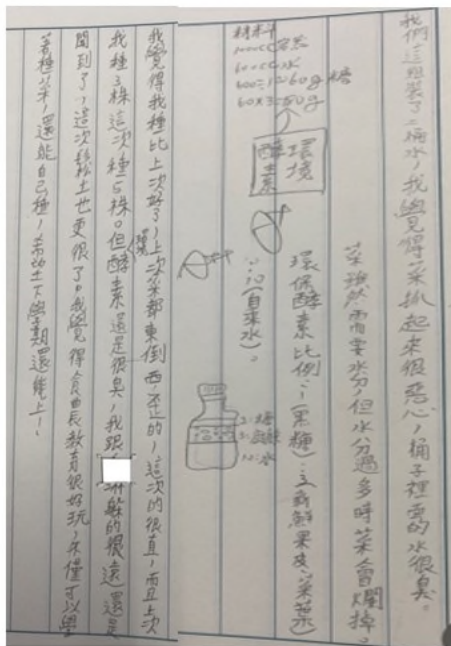 我們這組裝了二桶水,我覺得菜抓起來很惡心,桶子裡面的水很臭。
菜雖然需要水分,但水分過多時菜會爛掉。
環保酵素比例:1(黑糖):3(新鮮果皮、菜葉)
:10(自來水)。
材料
1000cc 容器
600cc 水
600÷10=60g 糖
60×3=180g
環境
酵素
1:糖
3:
10:水
我覺得我種比上次好了,上次菜都東倒西歪的,這次的很直,而且上次
我種3株這次種5株。但環境酵素還是很臭,我跟 躲的很遠還是
聞到了,這次鬆土也更很了。我覺得食農教育很好玩,不僅可以學
著種菜,還能自己種,希望下學期還能上!